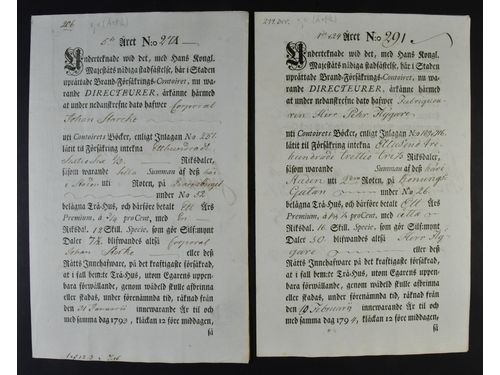 5te Året N:o 271
Underteknade wid det, med Hans Kongl.
Majestäts nådiga stadfästelse, här i Staden
uprättade Brand-Försäkrings-Contoiret, nu wa-
rande DIRECTEURER, årkänne härmed
at under nedanskrefne dato hafwer Corporal
Johan Starcke
uti Contoirets Böcker, enligt Inlagan No 251.
låtit til inteckning försäkra Etthundrade
Riksdaler,
såsom warande Summan af des här
i Staden uti Roten, på
under No 52
belägna Trä-Hus, och därföre betalt Ett Års
Premium, à 3/4 proCent, med En
Riksd. 12 Skill. Specie, som gör Silf:mynt
Daler 7 1/2 blifwandes altså Corporal
Johan Starcke eller deß
Rätts Innehafware, på det kraftigaste försäkrat,
at i fall bem:te Trä-Hus, utom Egarens uppen-
bara förwållande, genom wådeld skulle afbrinna
eller skadas, under förenämnda tid, räknad från
den 31 Januarii innewarande År til och
med samma dag 1793, klåckan 12 före middagen,
så
Året No 291
Underteknade wid det, med Hans Kongl.
Majestäts nådiga stadfästelse, här i Staden
uprättade Brand-Försäkrings-Contoiret, nu wa-
rande DIRECTEURER, årkänne härmed
at under nedanskrefne dato hafwer Fabriqueu-
ren Herr Petr Flygare
uti Contoirets Böcker, enligt Inlagan No
låtit til inteckning försäkra Ettusend tre-
hundrade Trettio Tre 1/3 Riksdaler,
såsom warande Summan af des här i
Staden uti Roten, på Konungs
Gatan under No 26
belägna Trä-Hus, och därföre betalt Ett Års
Premium, à proCent, med åtta
Riksd. 16 Skill. Specie, som gör Silf:mynt
Daler 50 blifwandes altså Herr Fly-
gare eller deß
Rätts Innehafware, på det kraftigaste försäkrat,
at i fall bem:te Trä-Hus, utom Egarens uppen-
bara förwållande, genom wådeld skulle afbrinna
eller skadas, under förenämnda tid, räknad från
den 10 Februarii innewarande År til och
med samma dag 1794, klåckan 12 före middagen,
så